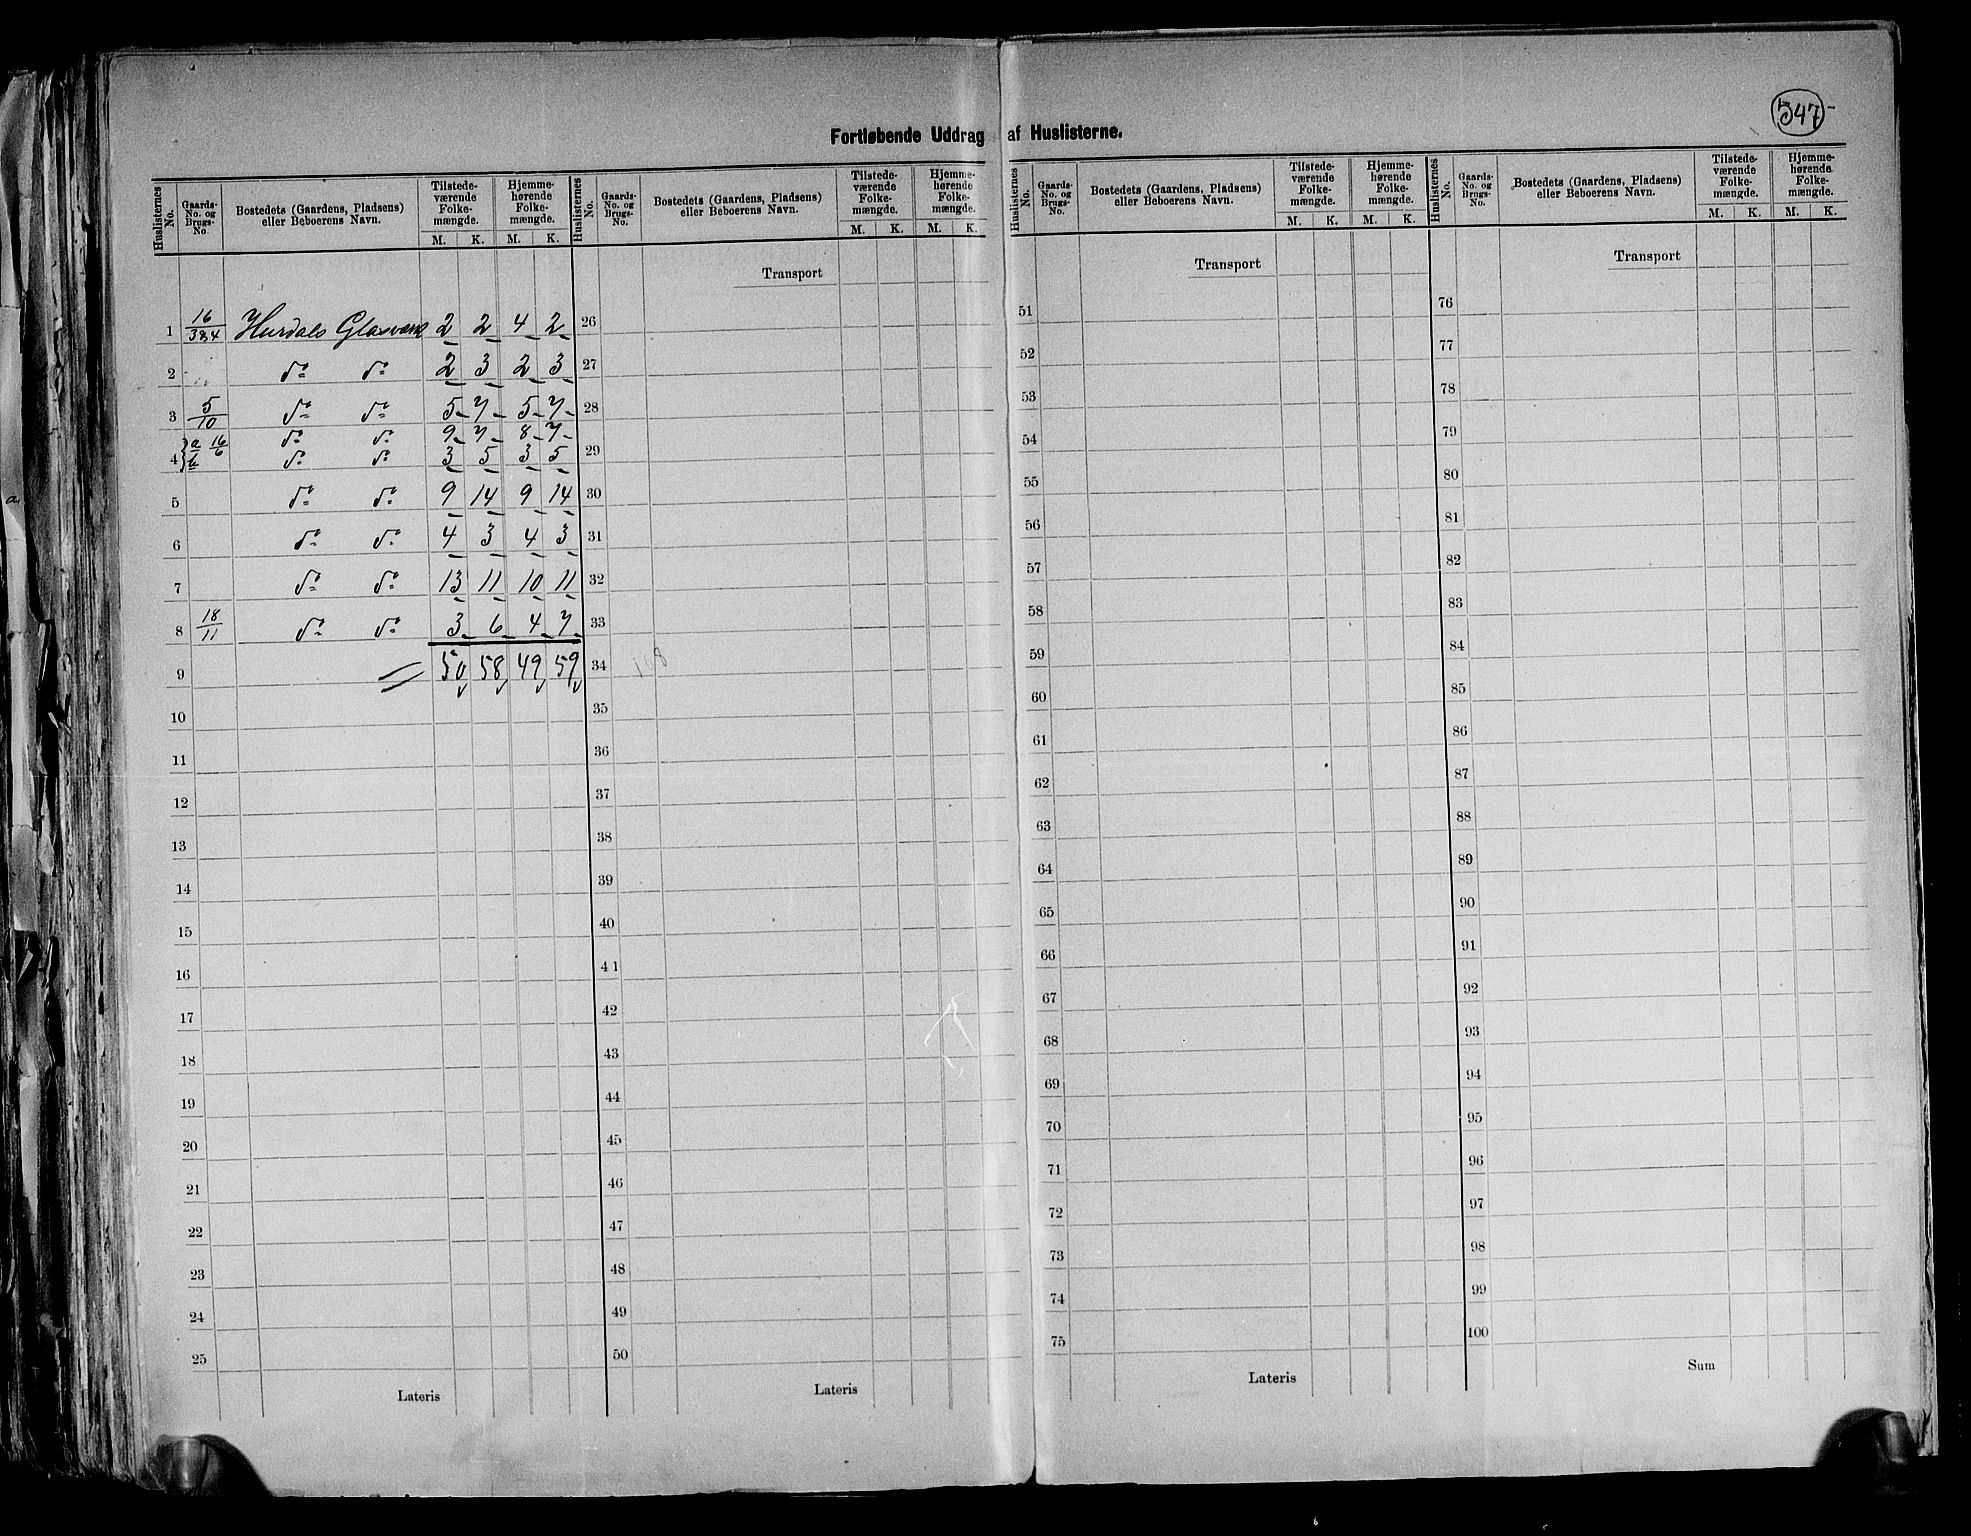 547
Fortløbende Uddrag af Huslisterne.
Huslisternes No. Gaards-No. og Brugs-No. Bostedets (Gaardens, Pladsens) eller Beboerens Navn. Tilstedeværende Folkemængde. M. K. Hjemmehørende Folkemængde. M. K.
1 16/3&4 Hurdals Glasværk 2 2 4 2
2 do do 2 3 2 3
3 5/10 do do 5 7 5 7
4 a 16/6 do do 9 7 8 7
b do do 3 5 3 5
5 do do 9 14 9 14
6 do do 4 3 4 3
7 do do 13 11 10 11
8 18/11 do do 3 6 4 7
9 50 58 49 59
10
11
12
13
14
15
16
17
18
19
20
21
22
23
24
25
Lateris
Huslisternes No. Gaards-No. og Brugs-No. Bostedets (Gaardens, Pladsens) eller Beboerens Navn. Tilstedeværende Folkemængde. M. K. Hjemmehørende Folkemængde. M. K.
Transport
26
27
28
29
30
31
32
33
34 108
35
36
37
38
39
40
41
42
43
44
45
46
47
48
49
50
Lateris
Huslisternes No. Gaards-No. og Brugs-No. Bostedets (Gaardens, Pladsens) eller Beboerens Navn. Tilstedeværende Folkemængde. M. K. Hjemmehørende Folkemængde. M. K.
Transport
51
52
53
54
55
56
57
58
59
60
61
62
63
64
65
66
67
68
69
70
71
72
73
74
75
Lateris
Huslisternes No. Gaards-No. og Brugs-No. Bostedets (Gaardens, Pladsens) eller Beboerens Navn. Tilstedeværende Folkemængde. M. K. Hjemmehørende Folkemængde. M. K.
Transport
76
77
78
79
80
81
82
83
84
85
86
87
88
89
90
91
92
93
94
95
96
97
98
99
100
Sum